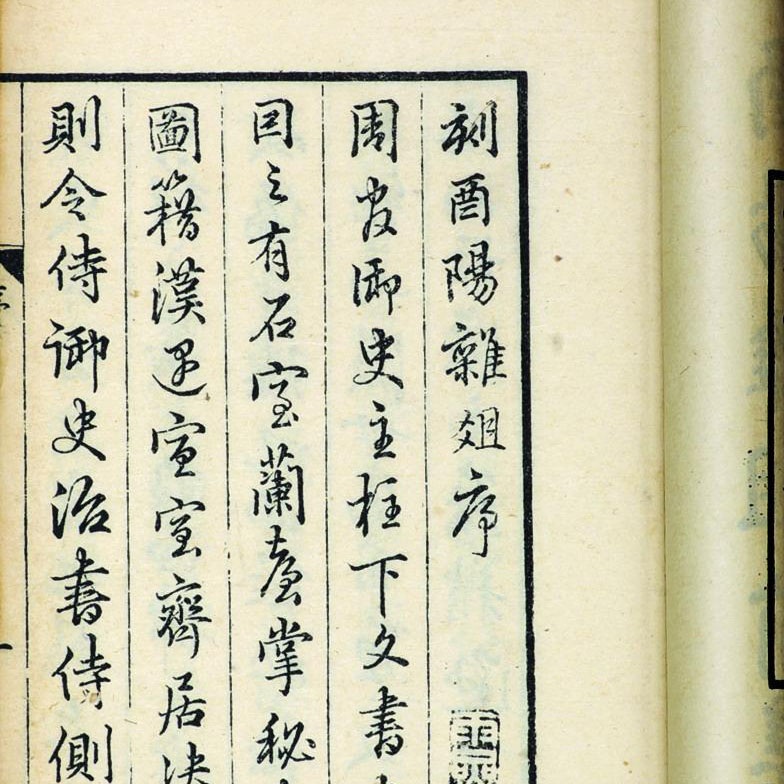 刻酉陽雜俎序
周官御史主柱下文書
因之有石室蘭臺掌秘
圖籍漢還宣室齊居决
則令侍御史治書侍側